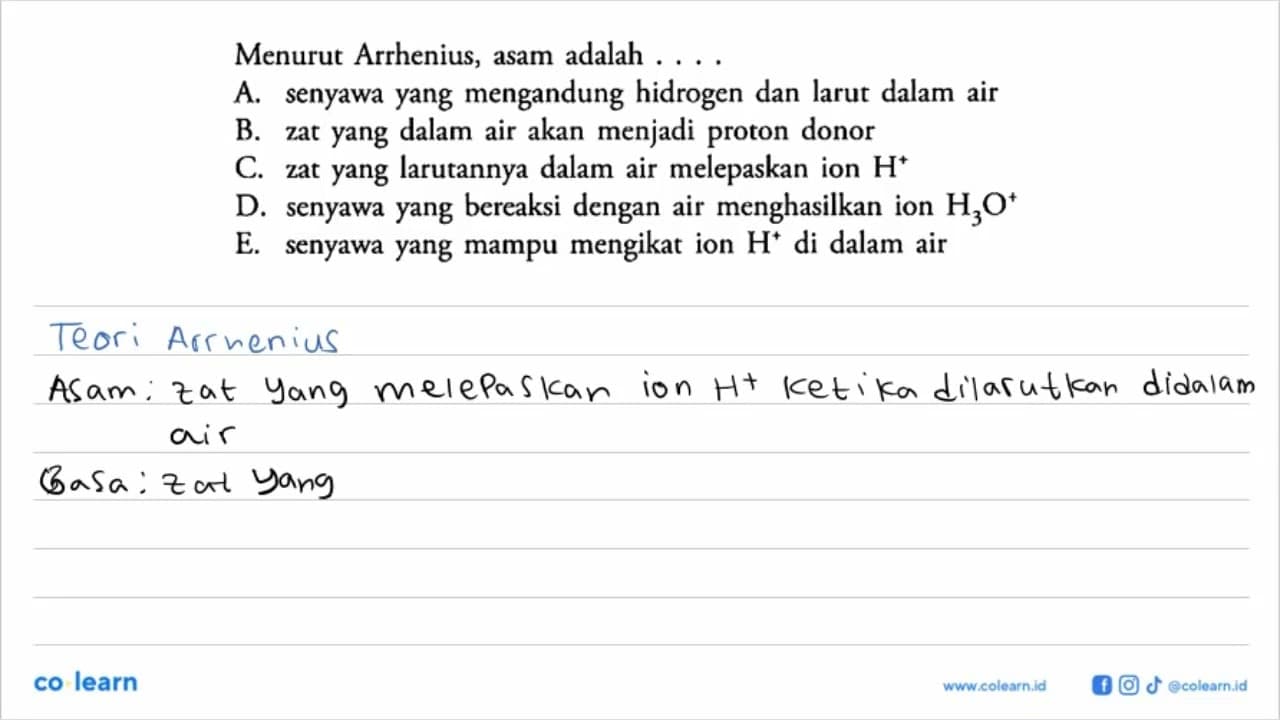 Menurut Arrhenius, asam adalah . . . .
A. senyawa yang mengandung hidrogen dan larut dalam air
B. zat yang dalam air akan menjadi proton donor
C. zat yang larutannya dalam air melepaskan ion H⁺
D. senyawa yang bereaksi dengan air menghasilkan ion H₃O⁺
E. senyawa yang mampu mengikat ion H⁺ di dalam air
Teori Arrhenius
Asam : zat yang melepaskan ion H⁺ ketika dilarutkan didalam
air
Basa : zat yang
co learn
www.colearn.id @colearn.id